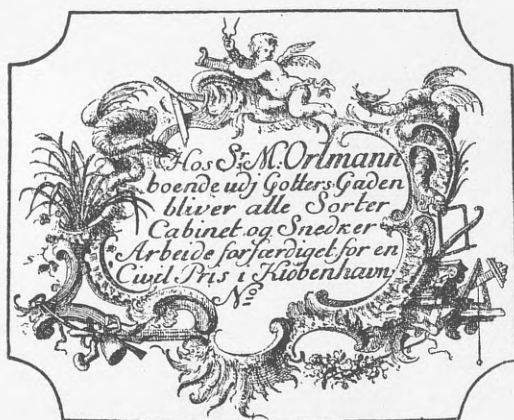 Hos Sr. M. Ortmann
boende udj Gotters Gaden
bliver alle Sorter
Cabinet og Snedker
Arbeide forfærdiget for en
Civil Pris i Kiobenhavn
No